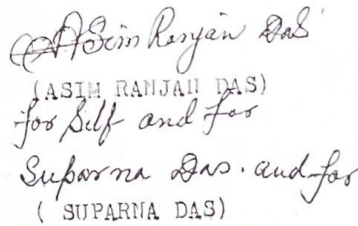 Asim Ranjan Das
(ASIM RANJAN DAS)
for Self and for
Suparna Das. and for
( SUPARNA DAS)